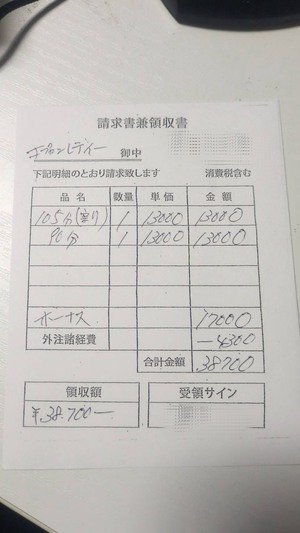 請求書兼領収書
エプロンレディー 御中
下記明細のとおり請求致します 消費税含む
品名 数量 単価 金額
105分(割り) 1 13000 13000
90分 1 13000 13000
ボーナス 17000
外注諸経費 -4300
合計金額 38700
領収額 受領サイン
¥38.700-